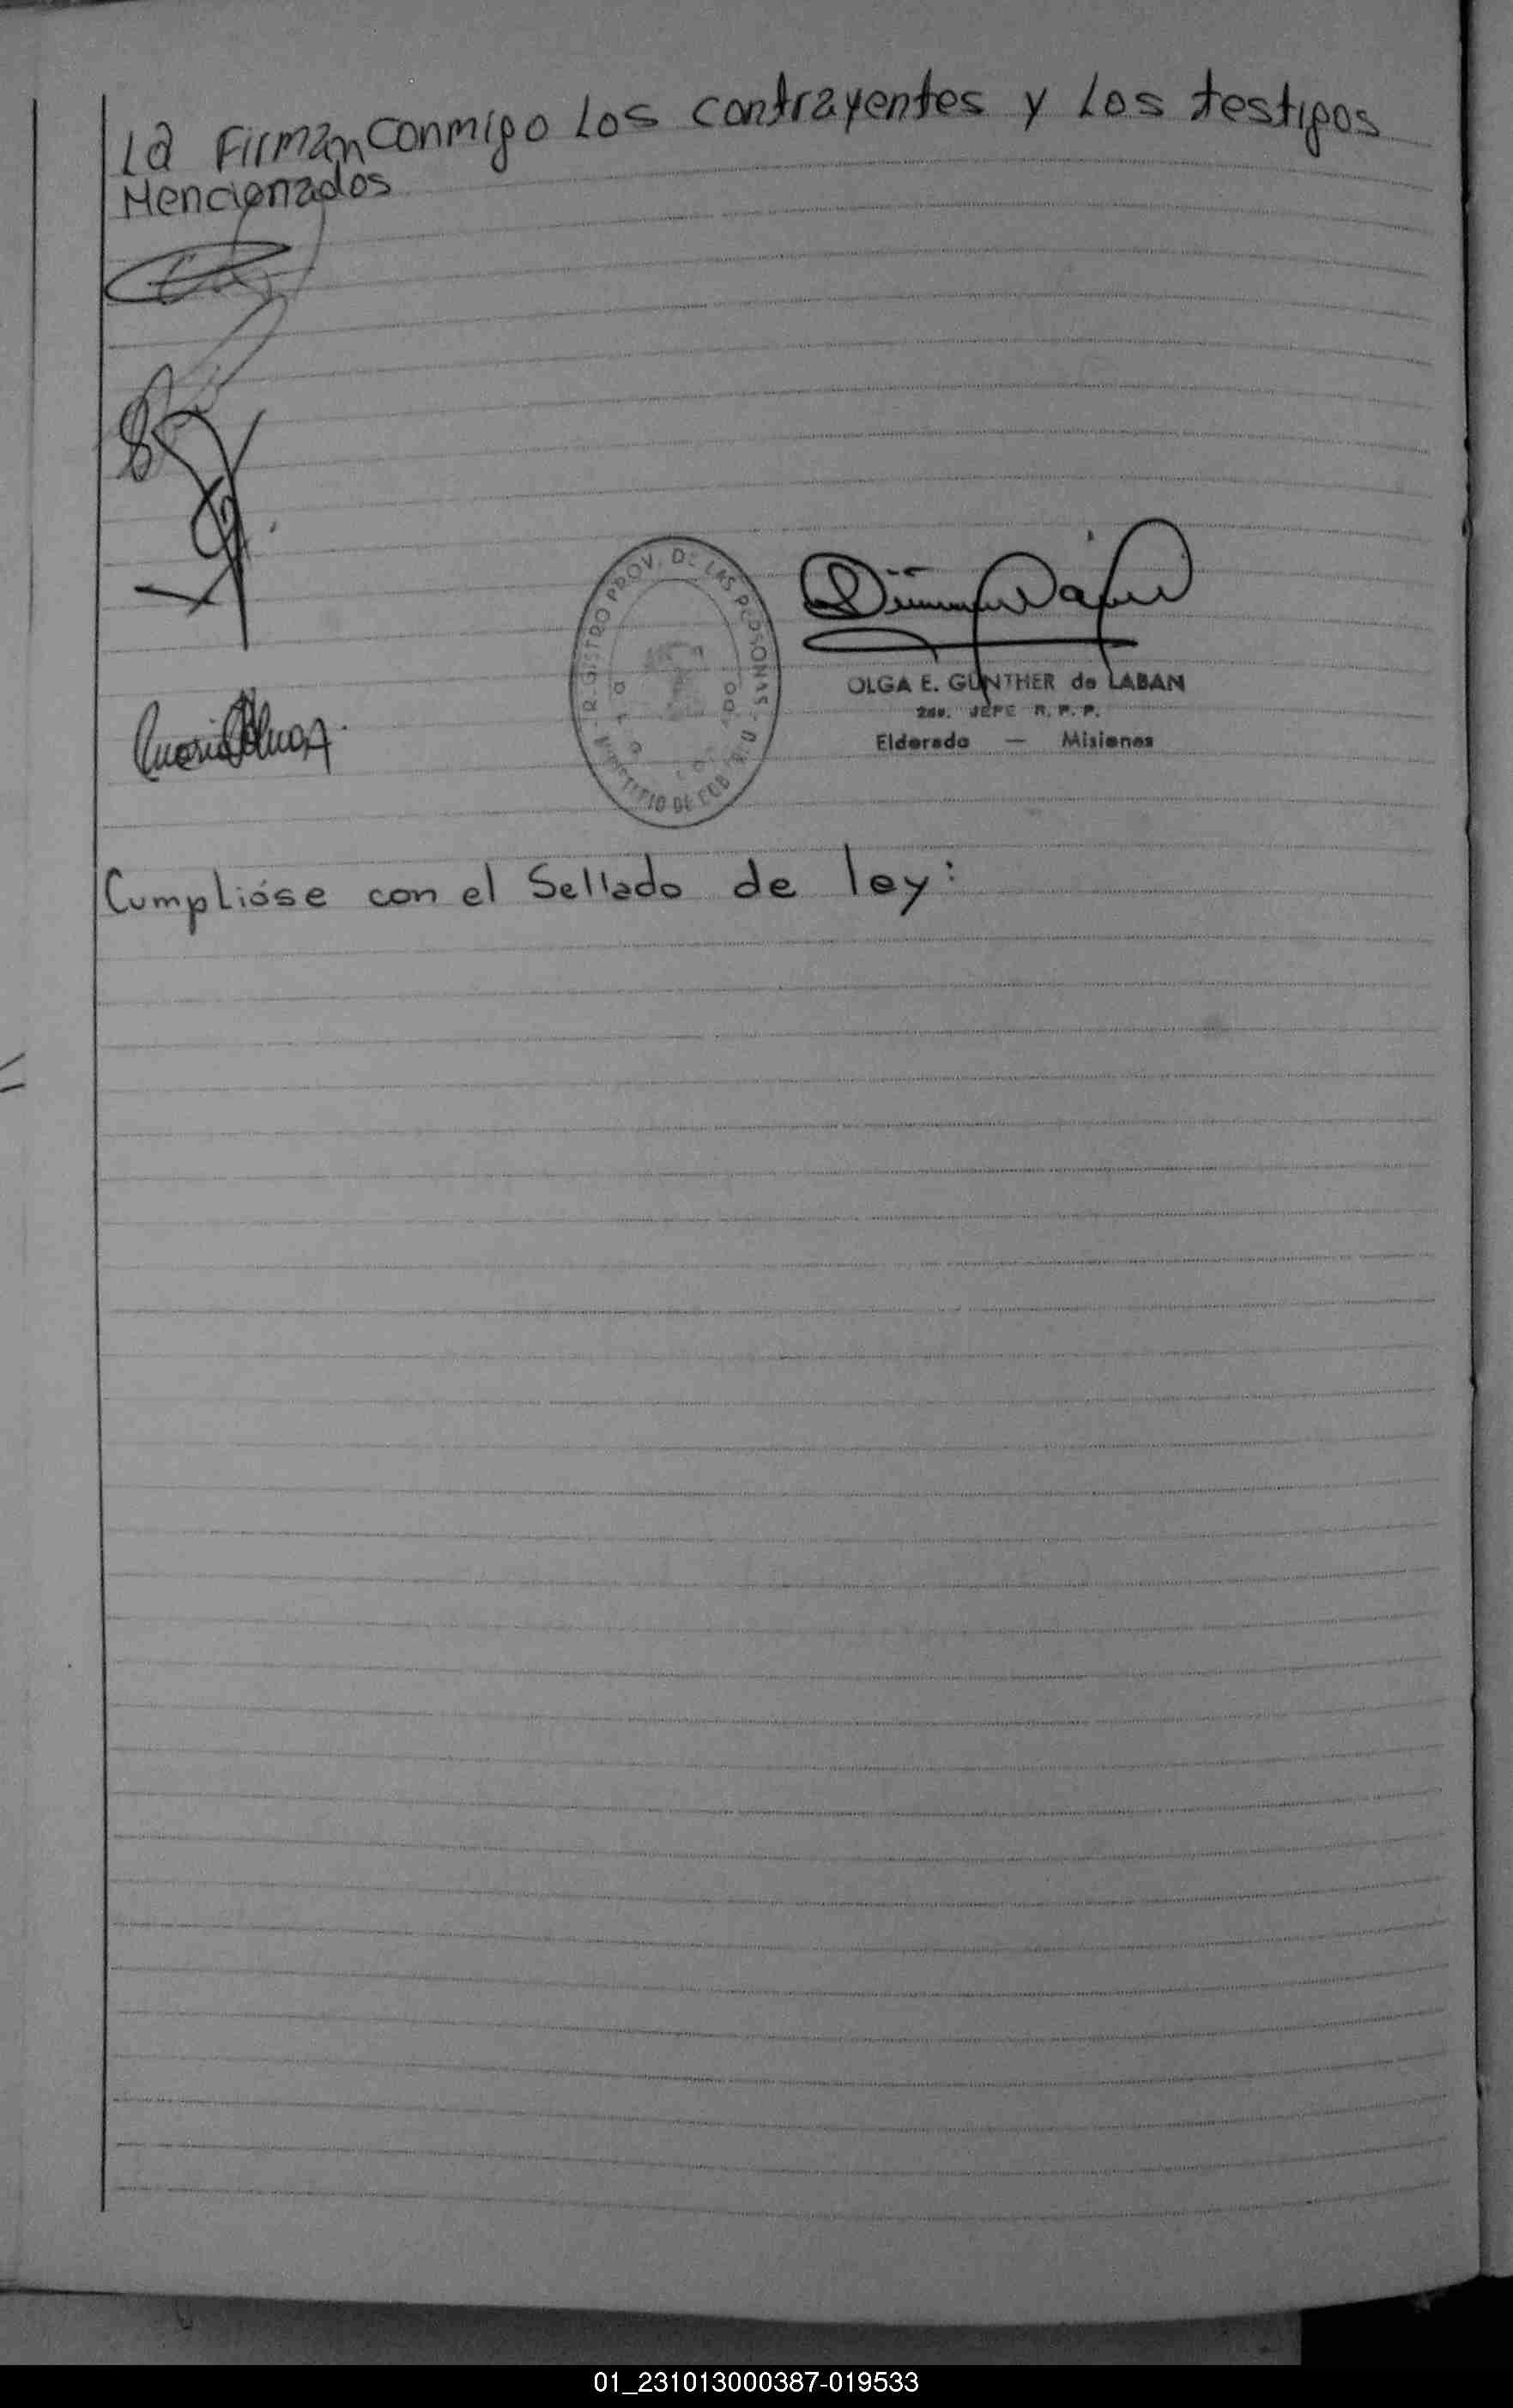 La Firman conmigo Los contrayentes y Los testigos
Mencionados
REGISTRO PROV. DE LAS PERSONAS
OLGA E. GUNTHER de LABAN
2do. JEFE R. P. P.
Eldorado — Misiones
Cumplióse con el Sellado de ley:
01_231013000387-019533